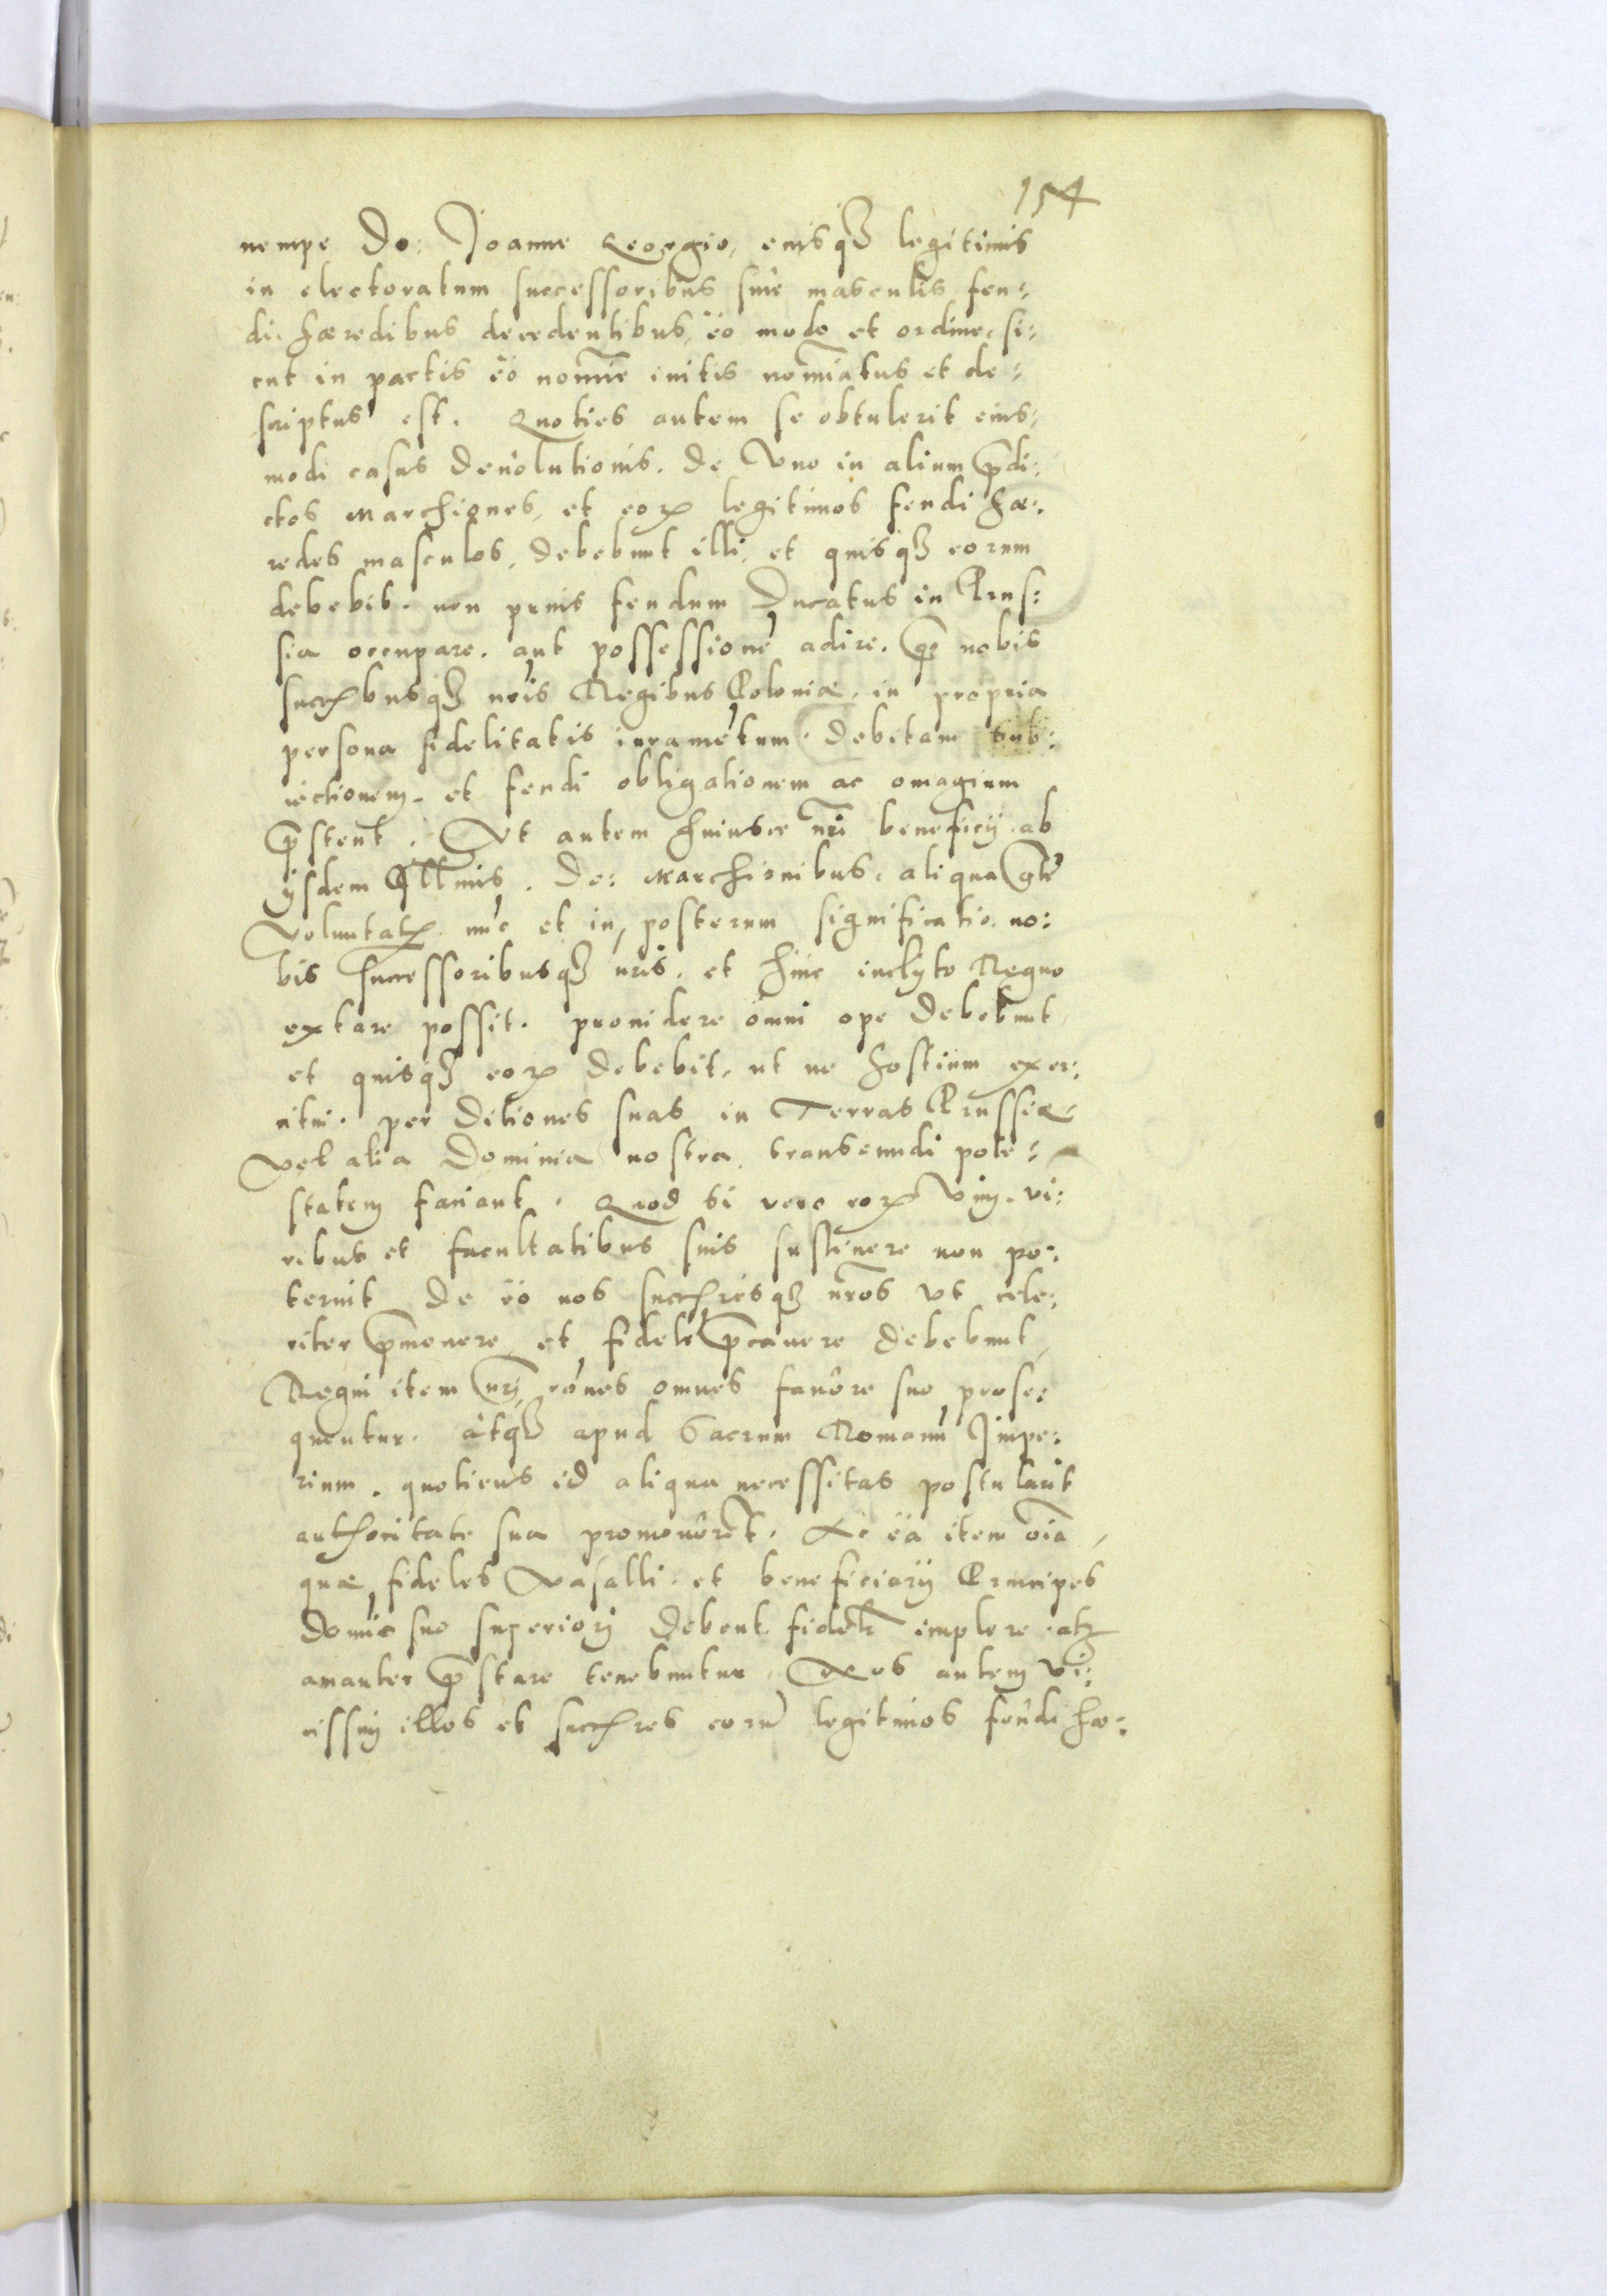 154
nempe Do: Joanne Georgio, eiusq₃ legitimis
in electoratum successoribus sine masculis feu:
di hæredibus decedentibus, eo modo et ordine, si:
cut in pactis eo nomīe initis nomīatus et de:
scriptus est. Quoties autem se obtulerit eius,
modi casus deuolutionis. de Vno in alium p̄di:
ctos Marchiones, et eoꝝ legitimos feudi hæ:
redes masculos, debebunt illi, et quisq₃ eorum
debebit. non prius feudum Ducatus in Prus:
sia occupare. aut possessionē adire. q̄ nobis
succ̄busq₃ nr̄is Regibus Poloniæ, in propria
persona fidelitatis iuramētum. debitam sub:
iectionem. et feudi obligationem ac omagium
p̄stent. Vt autem huiusce nr̄i beneficij ab
ijsdem Illmis. Do: Marchionibus, aliqua gtē
voluntatꝭ nūc et in posterum significatio no:
bis successoribusq₃ nr̄is. et huic inclyto Regno
extare possit. prouidere omni ope debebunt,
et quisq₃ eoꝝ debebit, ut ne hostium exer:
citui. per ditiones suas in Terras Prussiæ,
vel alia Dominia nostra transeundi pote:
statem faciant. Quod si vero eoꝝ vim. vi:
ribus et facultatibus suis sustinere non po:
terint de eo nos succ̄resq₃ nr̄os vt cele:
riter p̄monere et fidelr̄ p̄cauere debebunt,
Regni item nr̄i rōnes omnes fauore suo prose:
quentur. atq₃ apud Sacrum Romanū Impe:
rium. quotiens id aliqua necessitas postularit
authoritate sua promouebt. Ac ea item oīa,
quæ fideles Vasalli. et beneficiarij Principes
Domīo suo superiori debent. fidelr̄ implere atq₃
amanter p̄stare tenebuntur. Nos autem vi:
cissim illos et succ̄res eorū legitimos feudi hæ: